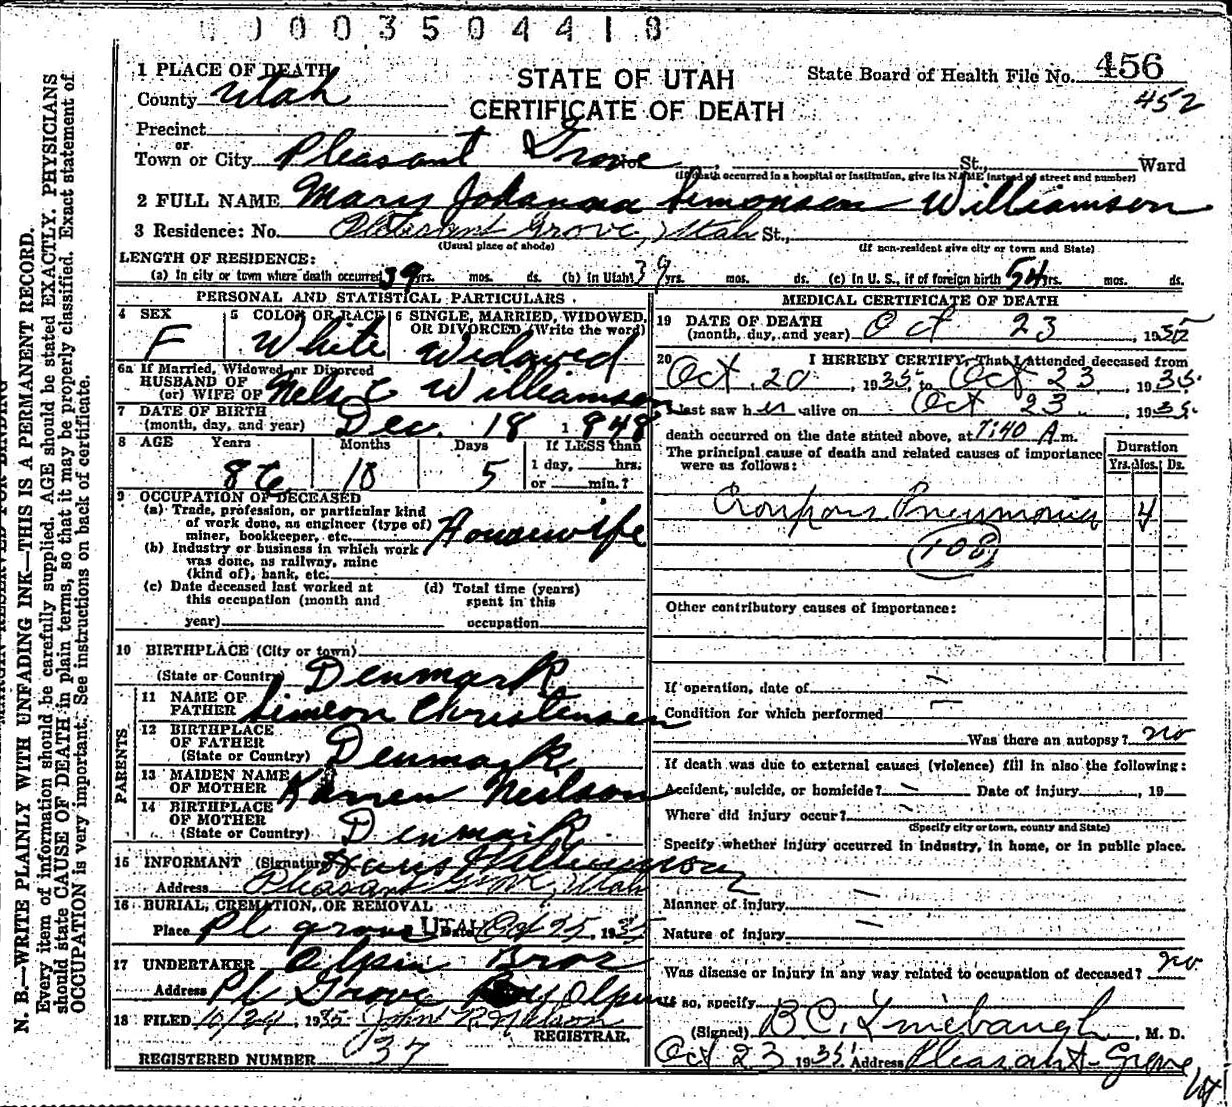 0003504418
1 PLACE OF DEATH
County Utah
STATE OF UTAH
CERTIFICATE OF DEATH
State Board of Health File No. 456
452
Precinct
or
Town or City Pleasant Grove St., Ward
(If death occurred in a hospital or institution, give its NAME instead of street and number)
2 FULL NAME Mary Johanna Simonsen Williamson
3 Residence: No. Pleasant Grove, Utah St.,
(Usual place of abode) (If non-resident give city or town and State)
LENGTH OF RESIDENCE:
(a) In city or town where death occurred 39 yrs. mos. ds. (b) In Utah 39 yrs. mos. ds. (c) In U. S., if of foreign birth 54 yrs. mos. ds.
PERSONAL AND STATISTICAL PARTICULARS
4 SEX
F
5 COLOR OR RACE
White
6 SINGLE, MARRIED, WIDOWED, OR DIVORCED (Write the word)
Widowed
6a If Married, Widowed or Divorced
HUSBAND OF
(or) WIFE OF Nels C Williamson
7 DATE OF BIRTH
(month, day, and year) Dec. 18 1848
8 AGE Years Months Days If LESS than
86 10 5 1 day, hrs.
or min.?
9 OCCUPATION OF DECEASED
(a) Trade, profession, or particular kind
of work done, as engineer (type of)
miner, bookkeeper, etc. Housewife
(b) Industry or business in which work
was done, as railway, mine
(kind of), bank, etc.
(c) Date deceased last worked at
this occupation (month and
year)
(d) Total time (years)
spent in this
occupation
10 BIRTHPLACE (City or town)
(State or Country) Denmark
PARENTS
11 NAME OF
FATHER Simeon Christensen
12 BIRTHPLACE
OF FATHER
(State or Country) Denmark
13 MAIDEN NAME
OF MOTHER Karren Neilson
14 BIRTHPLACE
OF MOTHER
(State or Country) Denmark
15 INFORMANT (Signature) Hans Williamson
Address Pleasant Grove, Utah
16 BURIAL, CREMATION, OR REMOVAL
Place Pl grove UTAH Date Oct 25, 1935
17 UNDERTAKER Olpin Bros
Address Pl Grove Roy Olpin
18 FILED 10/24, 1935 John R. Nelson
REGISTRAR.
REGISTERED NUMBER 37
MEDICAL CERTIFICATE OF DEATH
19 DATE OF DEATH
(month, day, and year) Oct 23, 1935
20 I HEREBY CERTIFY, That I attended deceased from
Oct. 20, 1935 to Oct 23, 1935.
I last saw her alive on Oct 23, 1935.
death occurred on the date stated above, at 7:40 A m.
The principal cause of death and related causes of importance
were as follows:
Duration
Yrs. Mos. Ds.
Croupous Pneumonia 4
108
Other contributory causes of importance:
If operation, date of
Condition for which performed
Was there an autopsy? no
If death was due to external causes (violence) fill in also the following:
Accident, suicide, or homicide? Date of injury , 19
Where did injury occur?
(Specify city or town, county and State)
Specify whether injury occurred in industry, in home, or in public place.
Manner of injury
Nature of injury
Was disease or injury in any way related to occupation of deceased? no
If so, specify
(Signed) B C. Linebaugh, M. D.
Oct 23 1935. Address Pleasant Grove
Ut
N. B.—WRITE PLAINLY WITH UNFADING INK—THIS IS A PERMANENT RECORD.
Every item of information should be carefully supplied. AGE should be stated EXACTLY. PHYSICIANS
should state CAUSE OF DEATH in plain terms, so that it may be properly classified. Exact statement of
OCCUPATION is very important. See instructions on back of certificate.